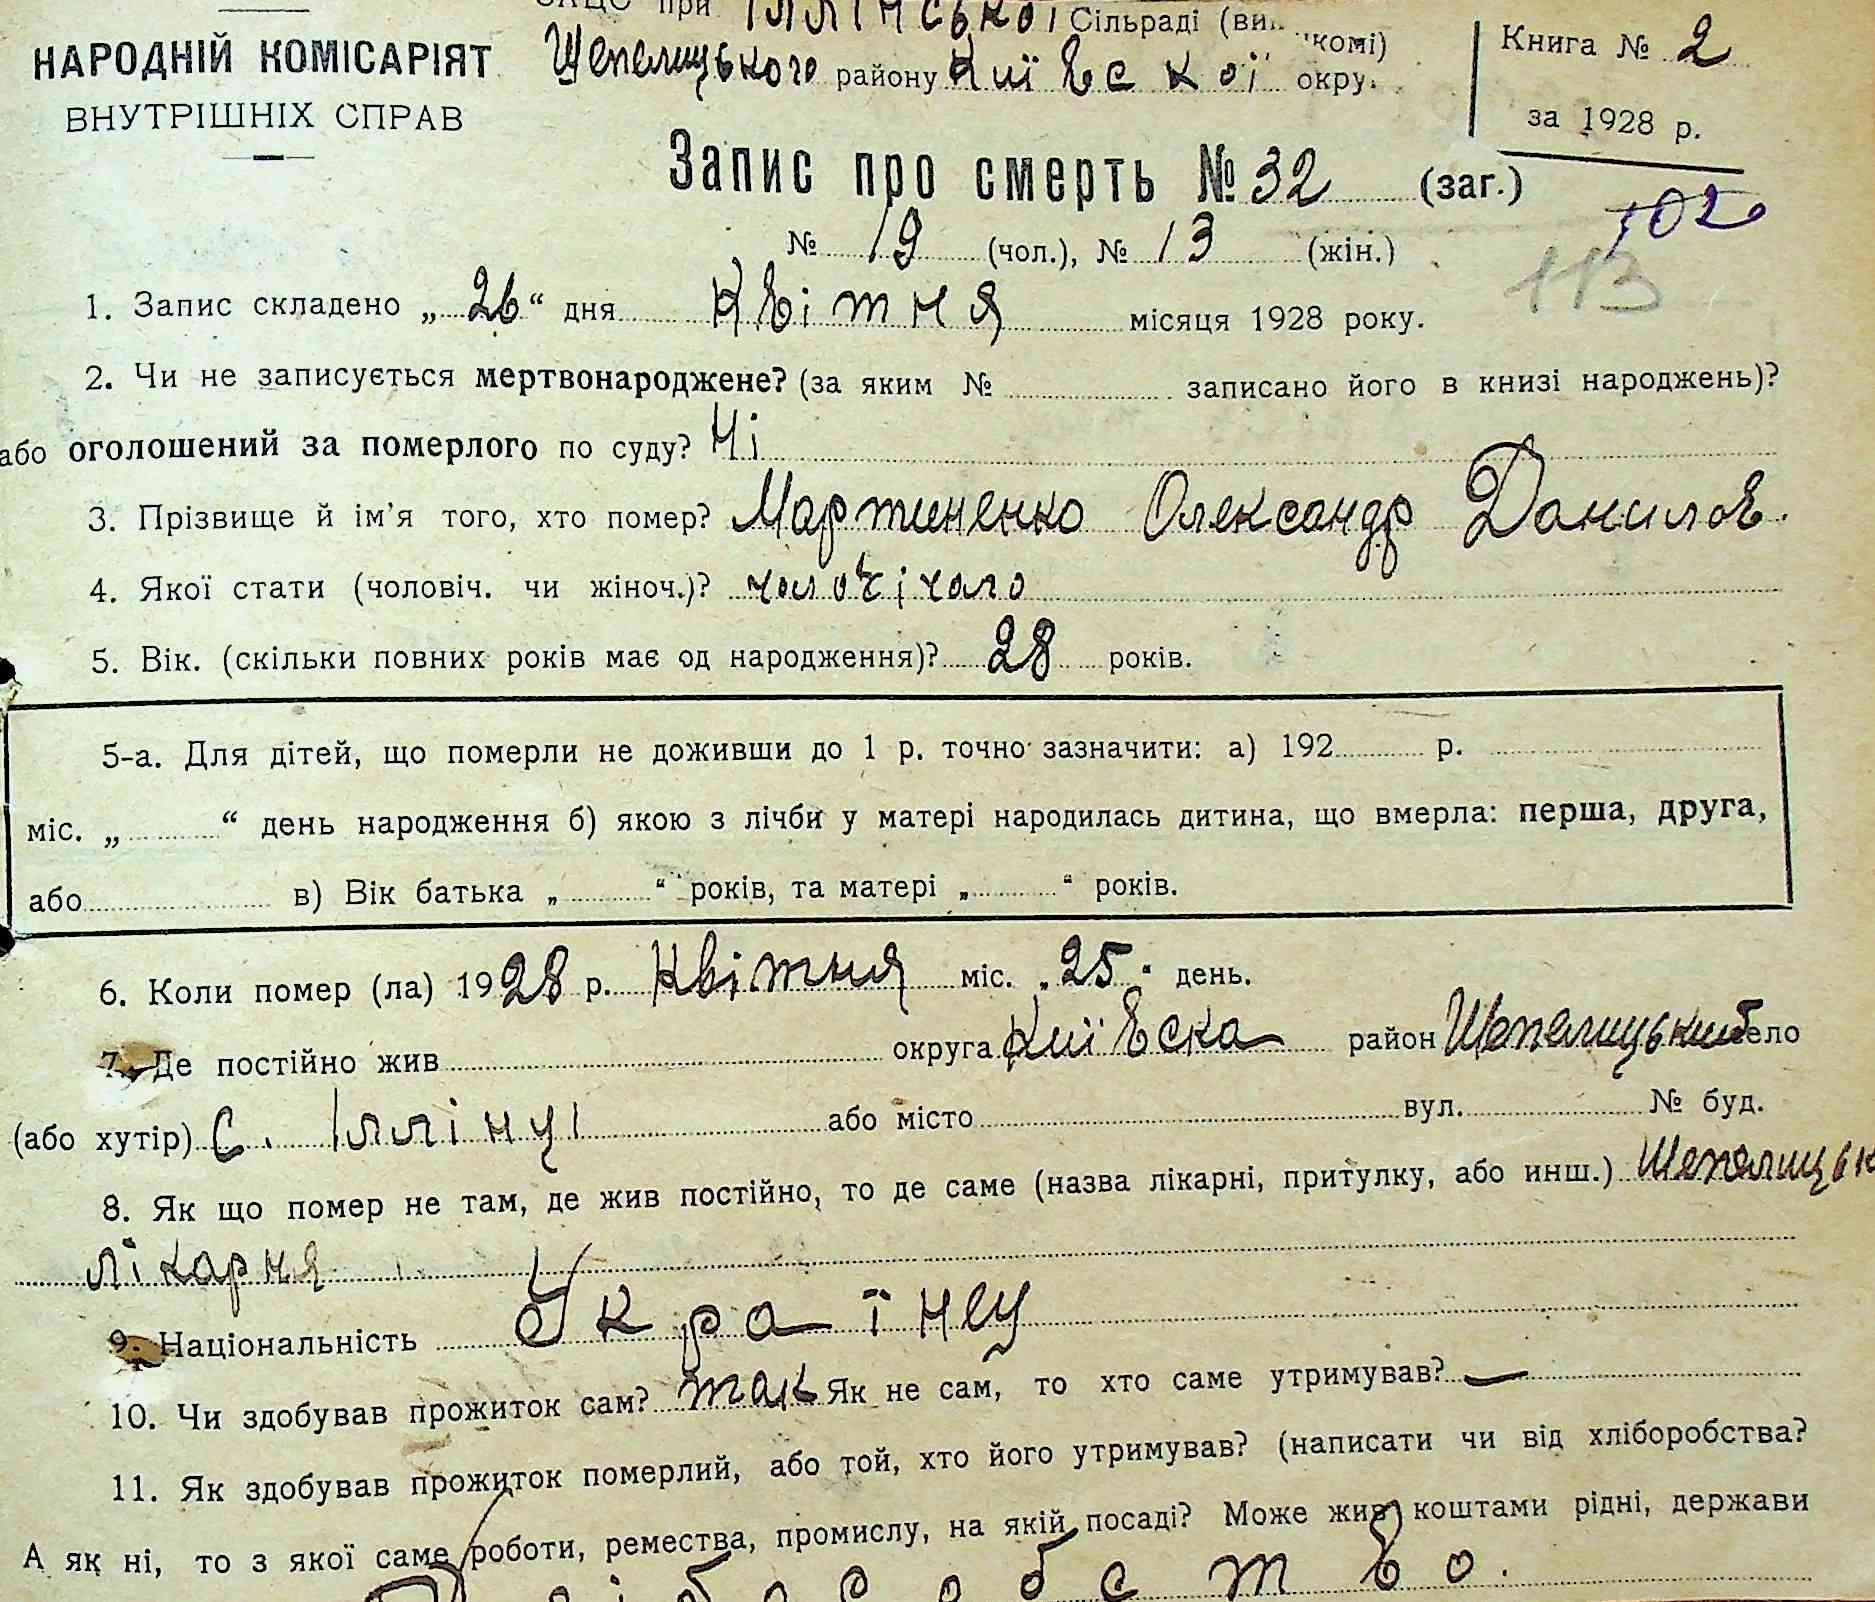 ЗАЦС при Іллінської Сільраді (вик...комі)
НАРОДНІЙ КОМІСАРІЯТ
ВНУТРІШНІХ СПРАВ
Шепелицького району Київської окру.
Книга № 2
за 1928 р.
Запис про смерть № 32 (заг.)
102
№ 19 (чол.), № 13 (жін.)
113
1. Запис складено „26“ дня Квітня місяця 1928 року.
2. Чи не записується мертвонароджене? (за яким № записано його в книзі народжень)?
або оголошений за померлого по суду? Ні
3. Прізвище й ім'я того, хто помер? Мартиненко Олександр Данилов.
4. Якої стати (чоловіч. чи жіноч.)? чоловічого
5. Вік. (скільки повних років має од народження)? 28 років.
5-а. Для дітей, що померли не доживши до 1 р. точно зазначити: а) 192 р.
міс. „ “ день народження б) якою з лічби у матері народилась дитина, що вмерла: перша, друга,
або в) Вік батька „ “ років, та матері „ “ років.
6. Коли помер (ла) 1928 р. Квітня міс. „25“ день.
7. Де постійно жив округа Київска район Шепелицький село
(або хутір) с. Іллінці або місто вул. № буд.
8. Як що помер не там, де жив постійно, то де саме (назва лікарні, притулку, або инш.) Шепелицьк
лікарня
9. Національність Українец
10. Чи здобував прожиток сам? так Як не сам, то хто саме утримував? —
11. Як здобував прожиток померлий, або той, хто його утримував? (написати чи від хліборобства?
А як ні, то з якої саме роботи, ремества, промислу, на якій посаді? Може жив коштами рідні, держави